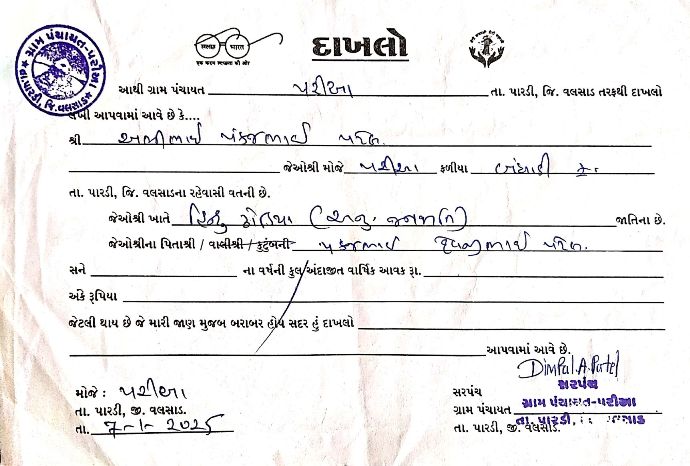 ગ્રામ પંચાયત-પરીઆ
તા.પારડી, જિ.વલસાડ
સ્વચ્છ ભારત
એક કદમ સ્વચ્છતા કી ઓર
દાખલો
આથી ગ્રામ પંચાયત પરીઆ તા. પારડી, જિ. વલસાડ તરફથી દાખલો
લખી આપવામાં આવે છે કે....
શ્રી પંકજભાઈ પટેલ
જેઓશ્રી મોજે પરીઆ ફળીયા
તા. પારડી, જિ. વલસાડના રહેવાસી વતની છે.
જેઓશ્રી ખાતે હિન્દુ ધોડીયા (અનુ. જનજાતિ) જાતિના છે.
જેઓશ્રીના પિતાશ્રી / વાલીશ્રી / કુટુંબની પંકજભાઈ પટેલ
સને ના વર્ષની કુલ અંદાજીત વાર્ષિક આવક રૂા.
અંકે રૂપિયા
જેટલી થાય છે જે મારી જાણ મુજબ બરાબર હોય સદર હું દાખલો
આપવામાં આવે છે.
Dimpal.A.Patel
મોજે : પરીઆ
સરપંચ
સરપંચ
તા. પારડી, જી. વલસાડ.
ગ્રામ પંચાયત ગ્રામ પંચાયત-પરીઆ
તા. 7-1-2025
તા. પારડી, જી. વલસાડ.
તા. પારડી,